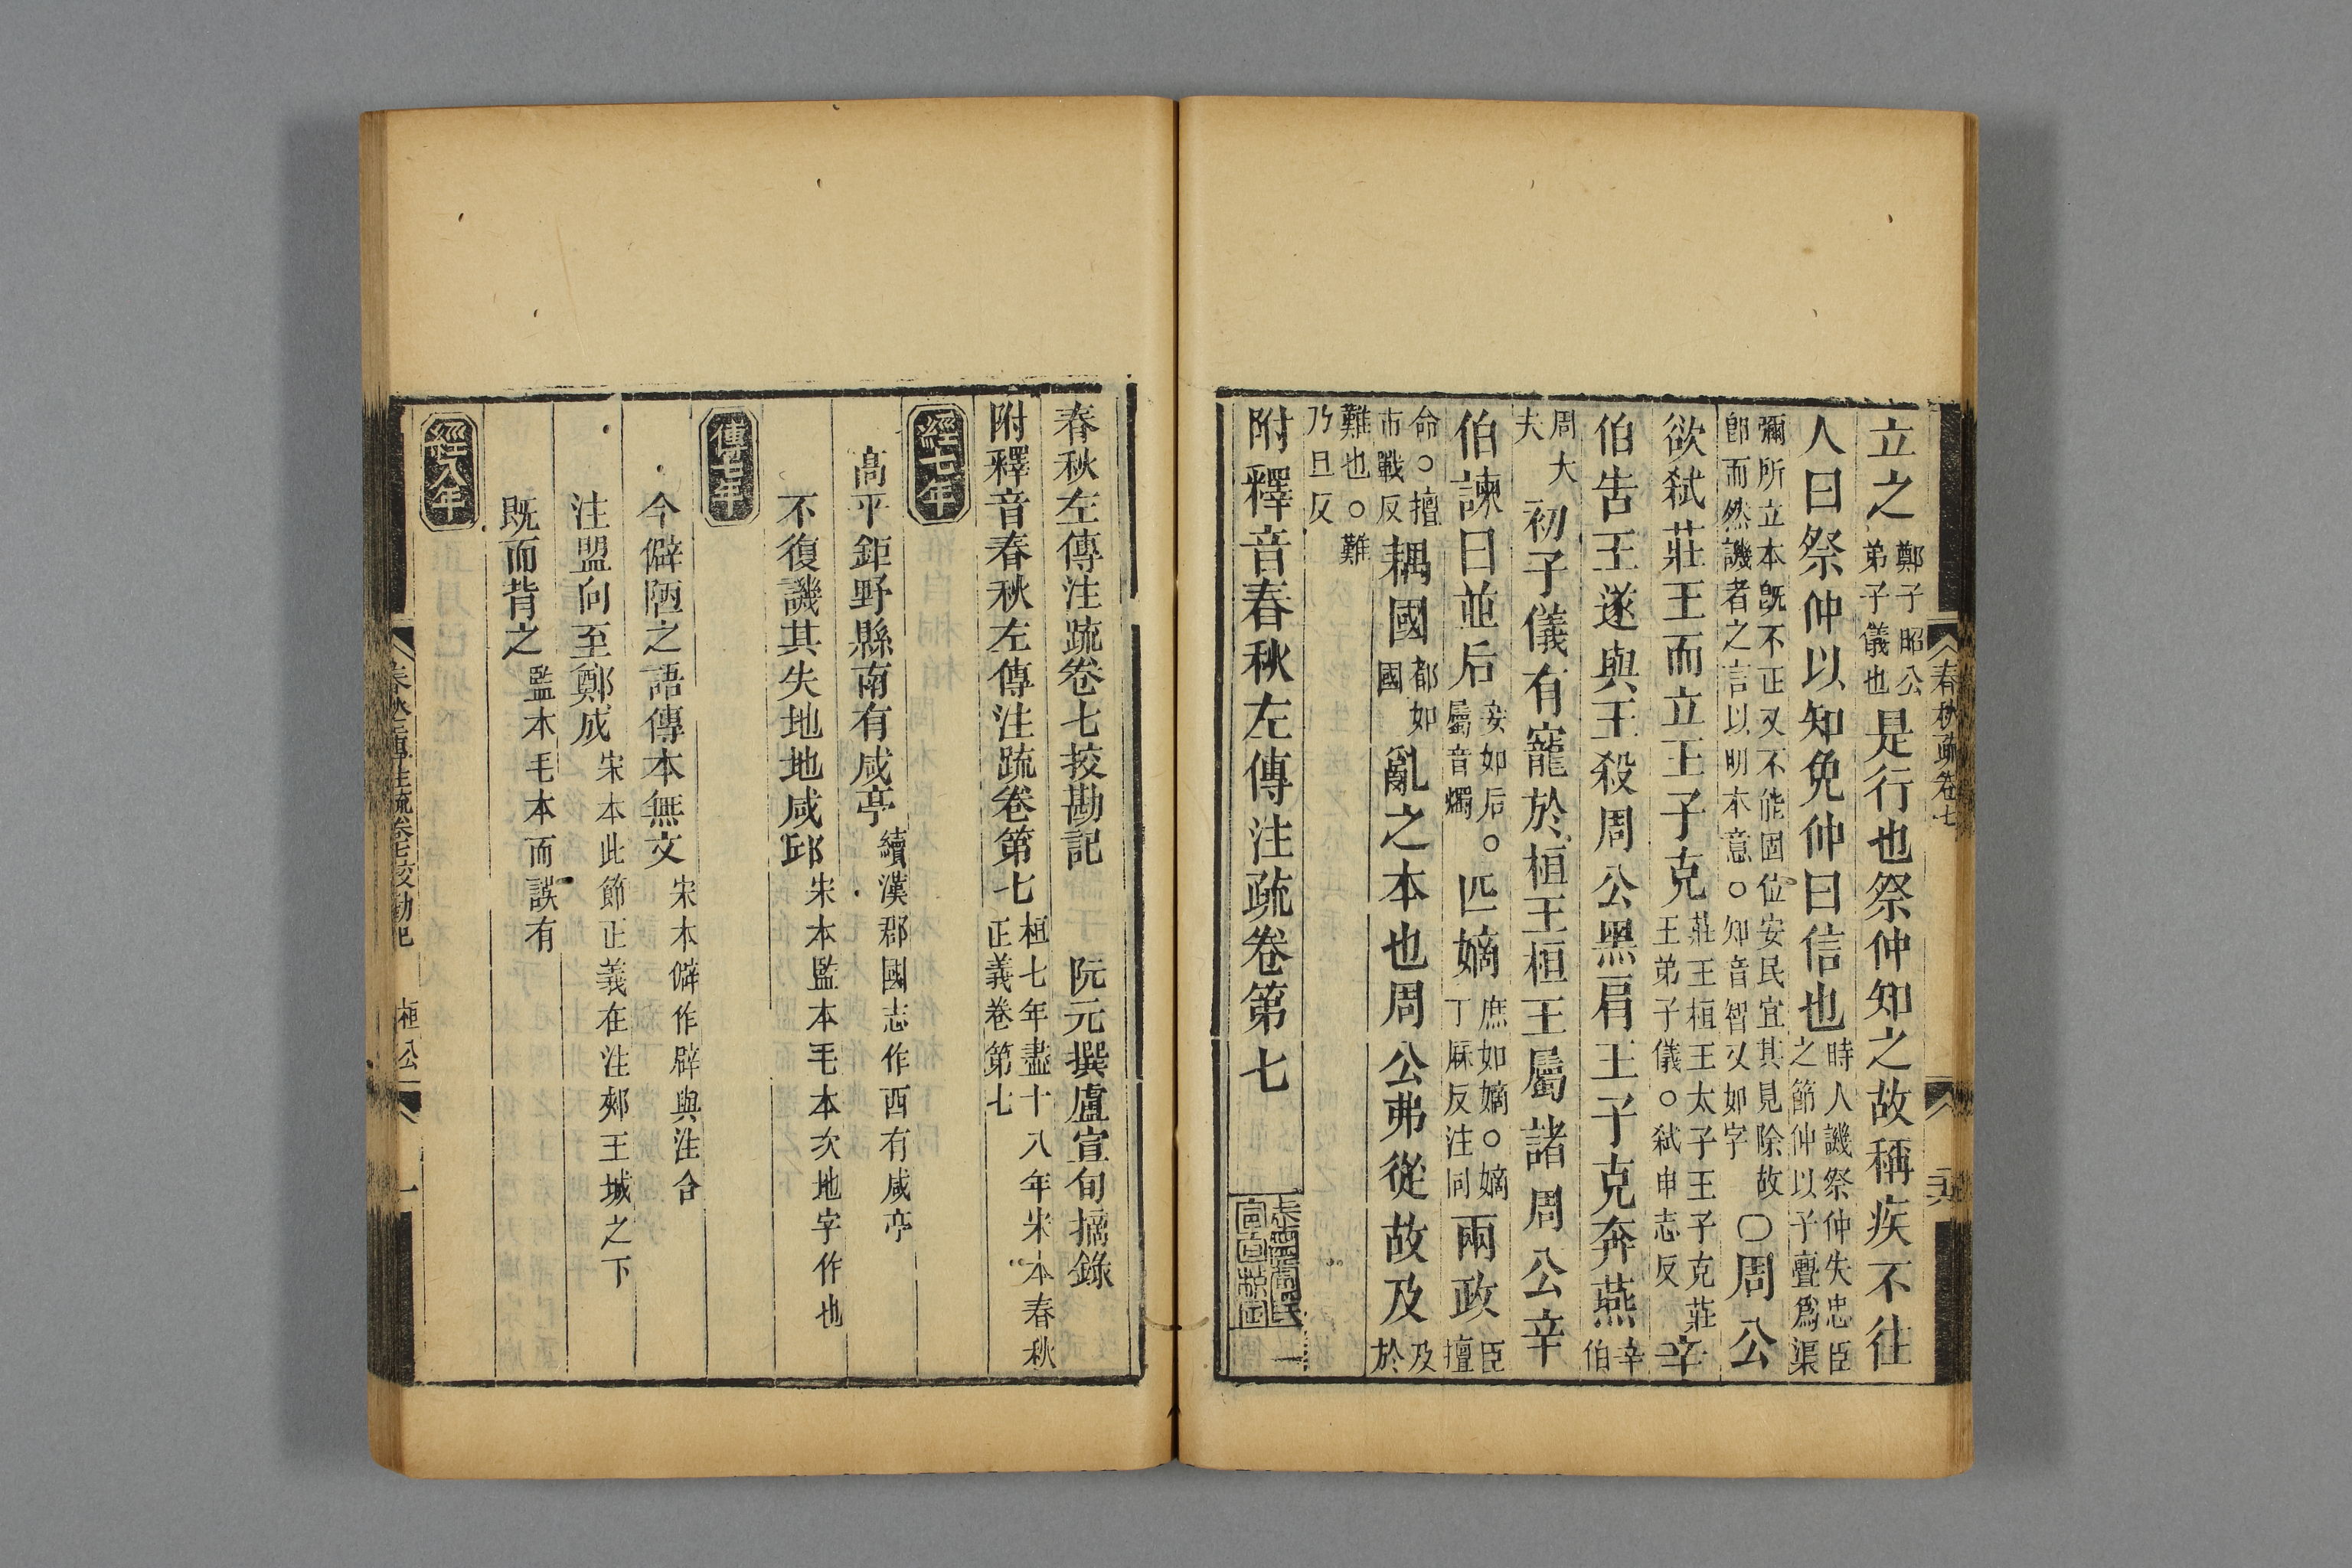 春秋疏卷七
立之鄭子昭公弟子儀也是行也祭仲知之故稱疾不往
人曰祭仲以知免仲曰信也時人譏祭仲失忠臣之節仲以子亹爲渠
彌所立本旣不正又不能固位安民宜其見除故卽而然譏者之言以明本意○知音智又如字〇周公
欲弑莊王而立王子克莊王桓王太子王子克莊王弟子儀○弑申志反辛
伯告王遂與王殺周公黑肩王子克奔燕辛伯
周大夫初子儀有寵於桓王桓王屬諸周公辛
伯諫曰並后妾如后○屬音燭匹嫡庶如嫡○嫡丁麻反注同兩政臣擅
命○擅市戰反耦國都如國亂之本也周公弗從故及及於
難也○難乃旦反
附釋音春秋左傳注疏卷第七
春秋左傳注疏卷七挍勘記 阮元撰盧宣旬摘錄
附釋音春秋左傳注疏卷第七桓七年盡十八年宋本春秋正義卷第七
經七年
高平鉅野縣南有咸亭續漢郡國志作西有咸亭
不復譏其失地地咸邱宋本監本毛本次地字作也
傳七年
今僻陋之語傳本無文宋本僻作辟與注合
注盟向至鄭成宋本此節正義在注郟王城之下
旣而背之監本毛本而誤有
經八年
春秋左傳注疏卷七挍勘記 桓公 一